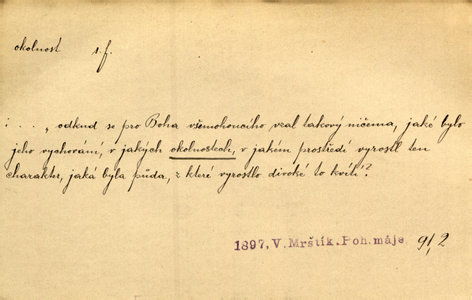 okolnost s.f.
: . . . „ odkud se pro Boha všemohoucího vzal takový ničema, jaké bylo
jeho vychování, v jakých okolnostech, v jakém prostředí vyrostl ten
charakter, jaká byla půda, z které vyrostlo divoké to kvítí"?
1897, V. Mrštík. Poh. máje. 91,2